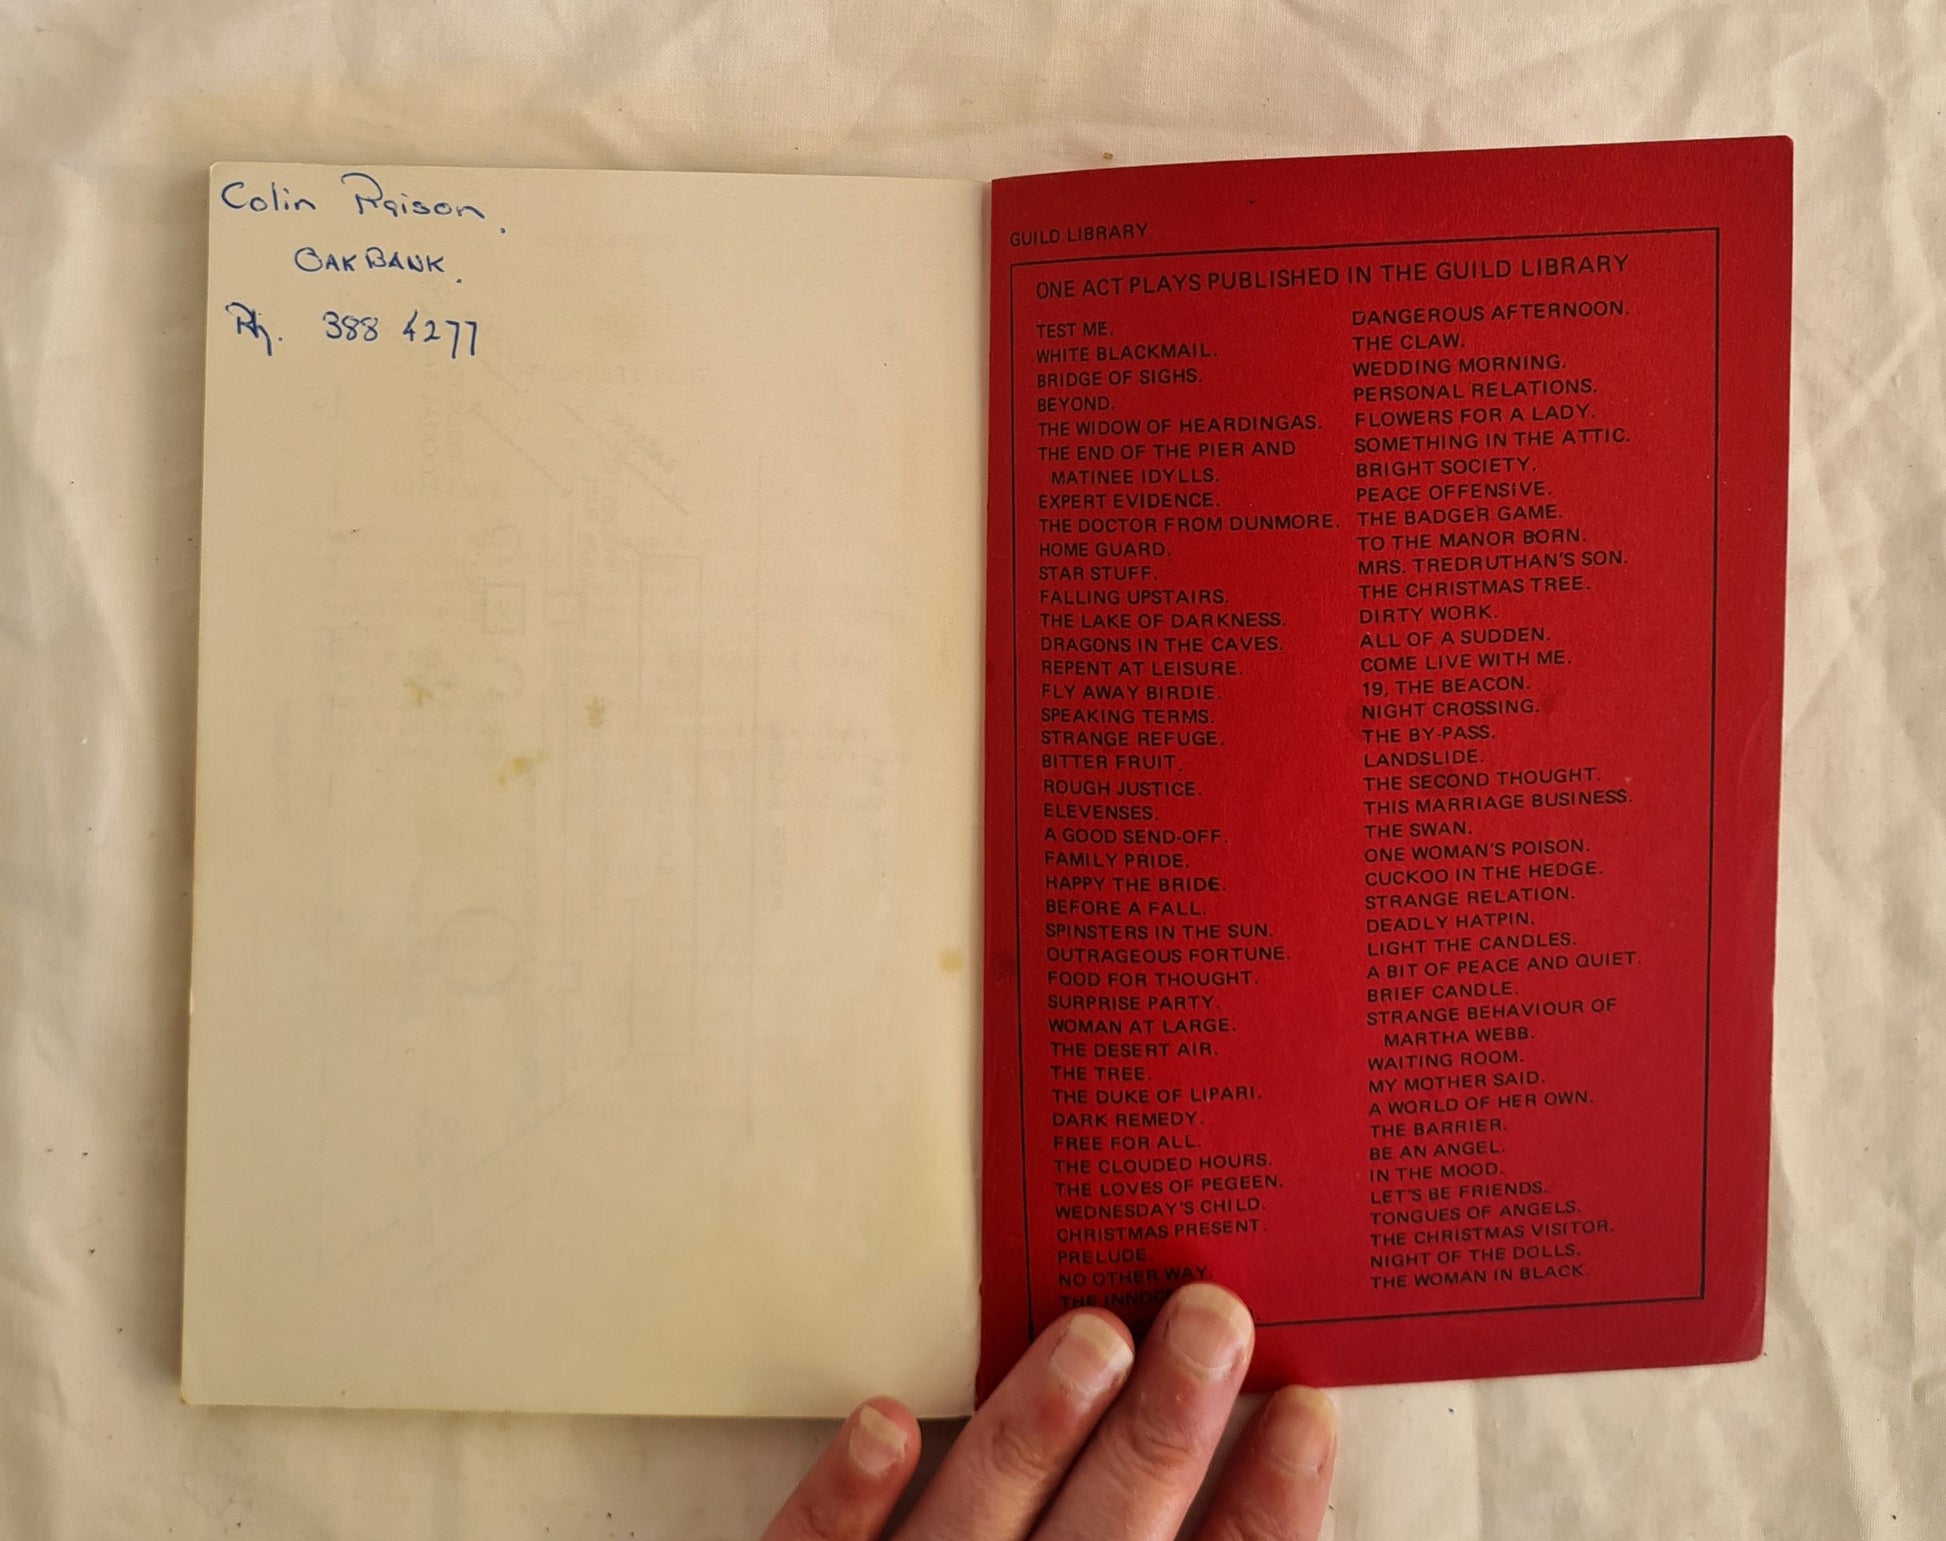 Colin Raison.
OAKBANK.
Ph. 388 4277
GUILD LIBRARY
ONE ACT PLAYS PUBLISHED IN THE GUILD LIBRARY
TEST ME.
WHITE BLACKMAIL.
BRIDGE OF SIGHS.
BEYOND.
THE WIDOW OF HEARDINGAS.
THE END OF THE PIER AND
MATINEE IDYLLS.
EXPERT EVIDENCE.
THE DOCTOR FROM DUNMORE.
HOME GUARD.
STAR STUFF.
FALLING UPSTAIRS.
THE LAKE OF DARKNESS.
DRAGONS IN THE CAVES.
REPENT AT LEISURE.
FLY AWAY BIRDIE.
SPEAKING TERMS.
STRANGE REFUGE.
BITTER FRUIT.
ROUGH JUSTICE.
ELEVENSES.
A GOOD SEND-OFF.
FAMILY PRIDE.
HAPPY THE BRIDE.
BEFORE A FALL.
SPINSTERS IN THE SUN.
OUTRAGEOUS FORTUNE.
FOOD FOR THOUGHT.
SURPRISE PARTY.
WOMAN AT LARGE.
THE DESERT AIR.
THE TREE.
THE DUKE OF LIPARI.
DARK REMEDY.
FREE FOR ALL.
THE CLOUDED HOURS.
THE LOVES OF PEGEEN.
WEDNESDAY'S CHILD.
CHRISTMAS PRESENT.
PRELUDE.
NO OTHER WAY.
THE
DANGEROUS AFTERNOON.
THE CLAW.
WEDDING MORNING.
PERSONAL RELATIONS.
FLOWERS FOR A LADY.
SOMETHING IN THE ATTIC.
BRIGHT SOCIETY.
PEACE OFFENSIVE.
THE BADGER GAME.
TO THE MANOR BORN.
MRS. TREDRUTHAN'S SON.
THE CHRISTMAS TREE.
DIRTY WORK.
ALL OF A SUDDEN.
COME LIVE WITH ME.
19, THE BEACON.
NIGHT CROSSING.
THE BY-PASS.
LANDSLIDE.
THE SECOND THOUGHT.
THIS MARRIAGE BUSINESS.
THE SWAN.
ONE WOMAN'S POISON.
CUCKOO IN THE HEDGE.
STRANGE RELATION.
DEADLY HATPIN.
LIGHT THE CANDLES.
A BIT OF PEACE AND QUIET.
BRIEF CANDLE.
STRANGE BEHAVIOUR OF
MARTHA WEBB.
WAITING ROOM.
MY MOTHER SAID.
A WORLD OF HER OWN.
THE BARRIER.
BE AN ANGEL.
IN THE MOOD.
LET'S BE FRIENDS.
TONGUES OF ANGELS.
THE CHRISTMAS VISITOR.
NIGHT OF THE DOLLS.
THE WOMAN IN BLACK.